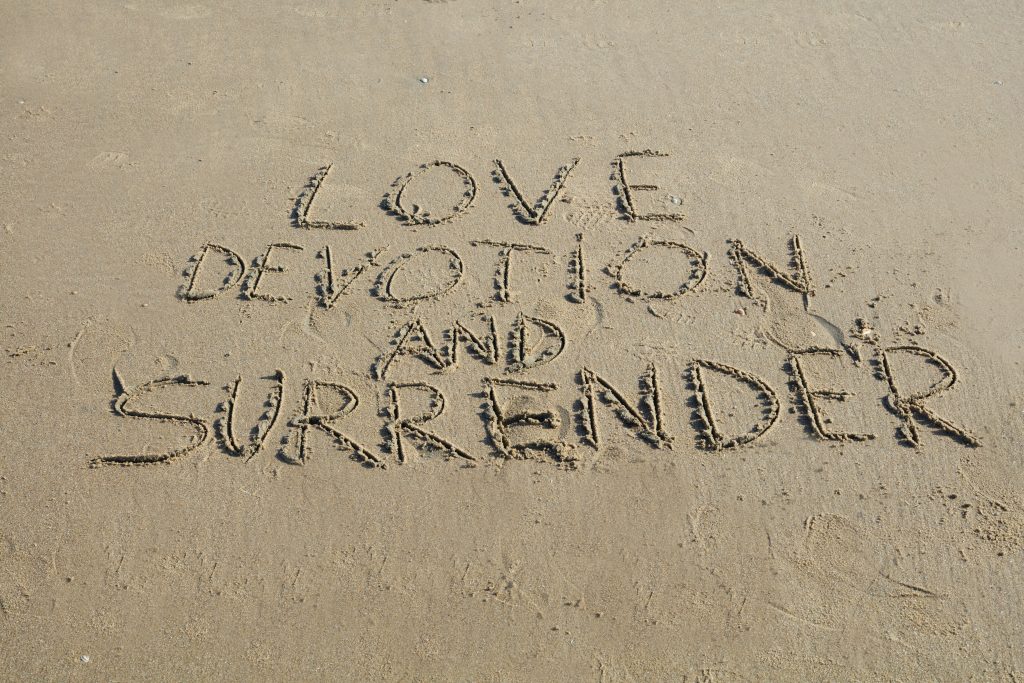 LOVE
DEVOTION
AND
SURRENDER